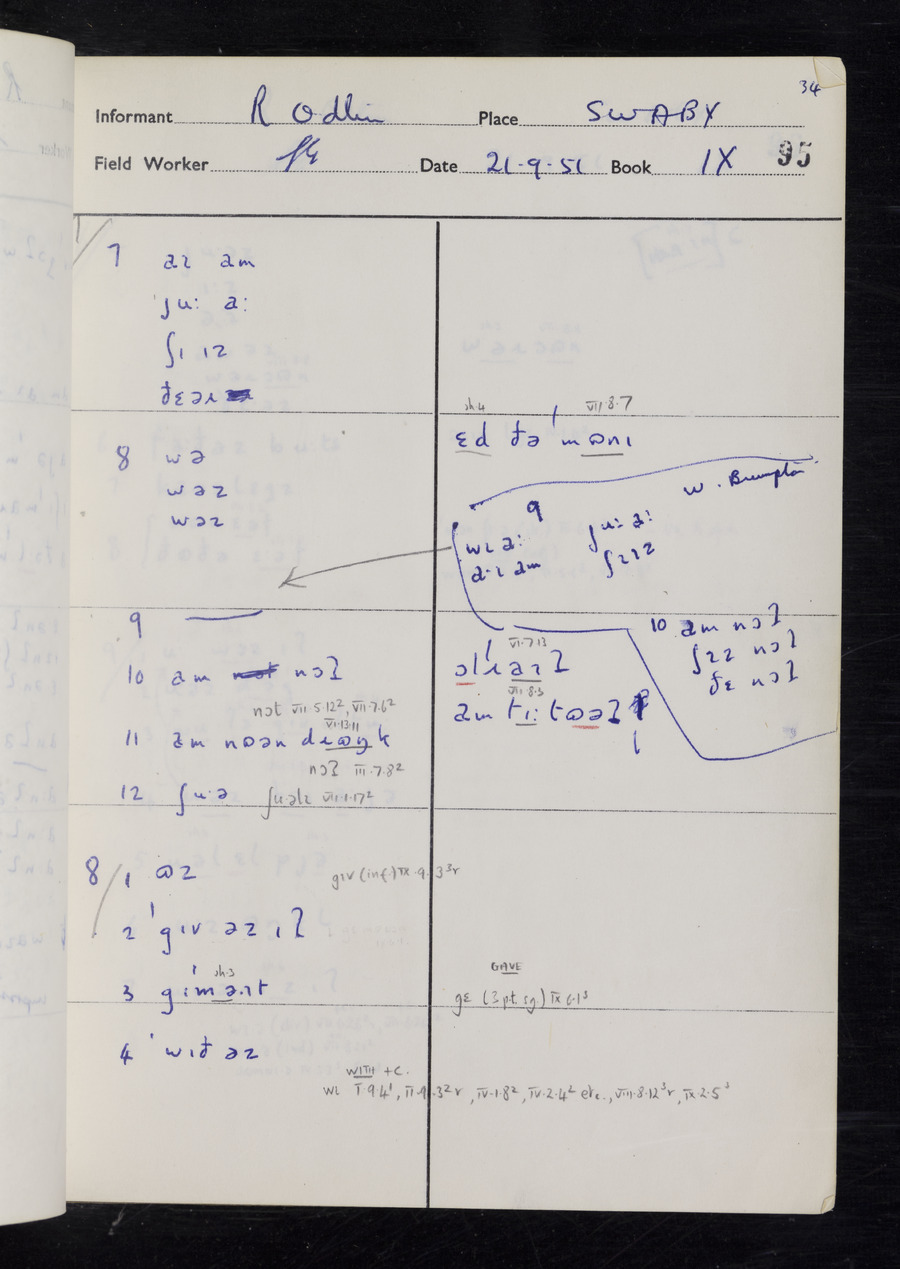 34
Informant R Odlin Place SWABY
Field Worker Date 21-9-51 Book IX 95
7 aɪ am
ju: a:
ʃɪ ɪz
ðɛə
8 wə
wəz
wəz
9
10 am nɔʔ
nɔt VII.5.12², VII.7.6²
VI.13.11
11 am nɔən
nɔʔ III.7.8²
12 ʃu·ə VII.1.17²
8/1 ɷz
gɪv (inf.) IX.9.3³r
2 ˈgɪv əz ɪʔ
sh.3
3
4 ˈwɪð əz
WITH +C.
wɪ I.9.4¹, II.9.3²r, IV.1.8², IV.2.4² etc., VIII.8.12³r, IX.2.5³
sh.4 VII.8.7
ɛd ðə ˈmɷnɪ
W. Brumpton
9
wɪ a: ju: a:
a·ɪ am ʃɪ ɪz
10 am nɔʔ
ʃɪz nɔʔ
ðɛ nɔʔ
VI.7.13
ɔlɹaɪʔ
VII.8.3
GAVE
gɛ (3 pt. sg.) IX.6.1³